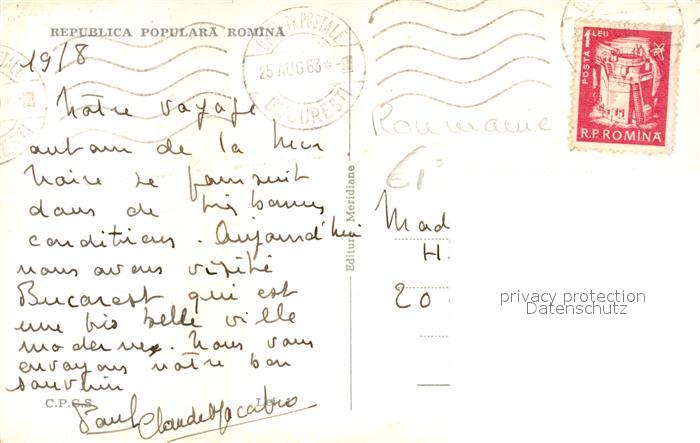 REPUBLICA POPULARĂ ROMÎNĂ
19/8
25 AUG 63
BUCUREȘTI
POSTA 1 LEU
R.P.ROMINA
Roumanie
€1
Notre voyage
autour de la Mer
Noire se poursuit
dans de très bonnes
conditions. Aujourd'hui
nous avons visité
Bucarest qui est
une très belle ville
moderne. Nous vous
envoyons notre bon
souvenir
Paul
C.P.C.S.
Editura Meridiane
Mad
H.
20
privacy protection
Datenschutz